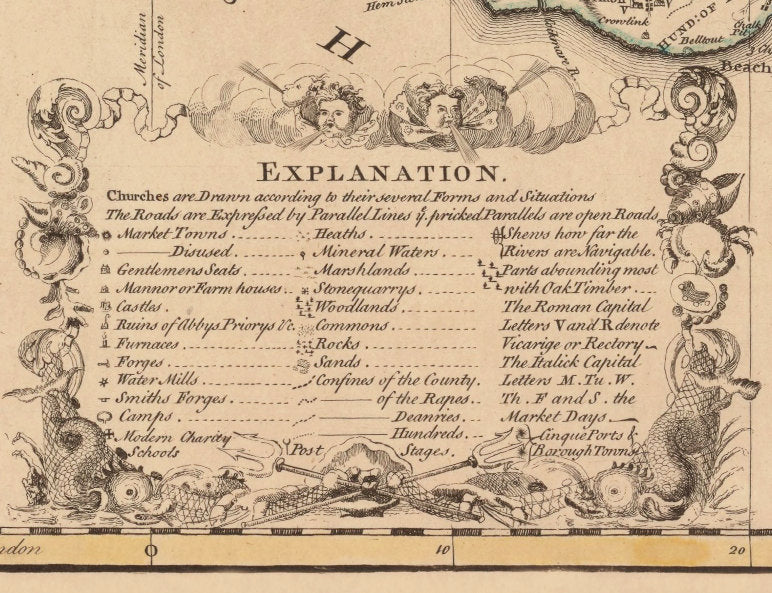 Meridian
of London
H
Crowlink
V
HUND: OF
Belltout
Chalk
Pit
Beach
Cuckmere R.
EXPLANATION.
Churches are Drawn according to their several Forms and Situations
The Roads are Expressed by Parallel Lines ẏ. pricked Parallels are open Roads
Market Towns
Disused
Gentlemens Seats
Mannor or Farm houses
Castles
Ruins of Abbys Priorys &c.
Furnaces
Forges
Water Mills
Smiths Forges
Camps
Modern Charity
Schools
Heaths
Mineral Waters
Marshlands
Stonequarrys
Woodlands
Commons
Rocks
Sands
Confines of the County.
of the Rapes
Deanries
Hundreds
Post Stages.
Shews how far the
Rivers are Navigable.
Parts abounding most
with Oak Timber
The Roman Capital
Letters V and R denote
Vicarige or Rectory
The Italick Capital
Letters M. Tu. W.
Th. F and S. the
Market Days
Cinque Ports &
Borough Towns
ndon
0
10
20